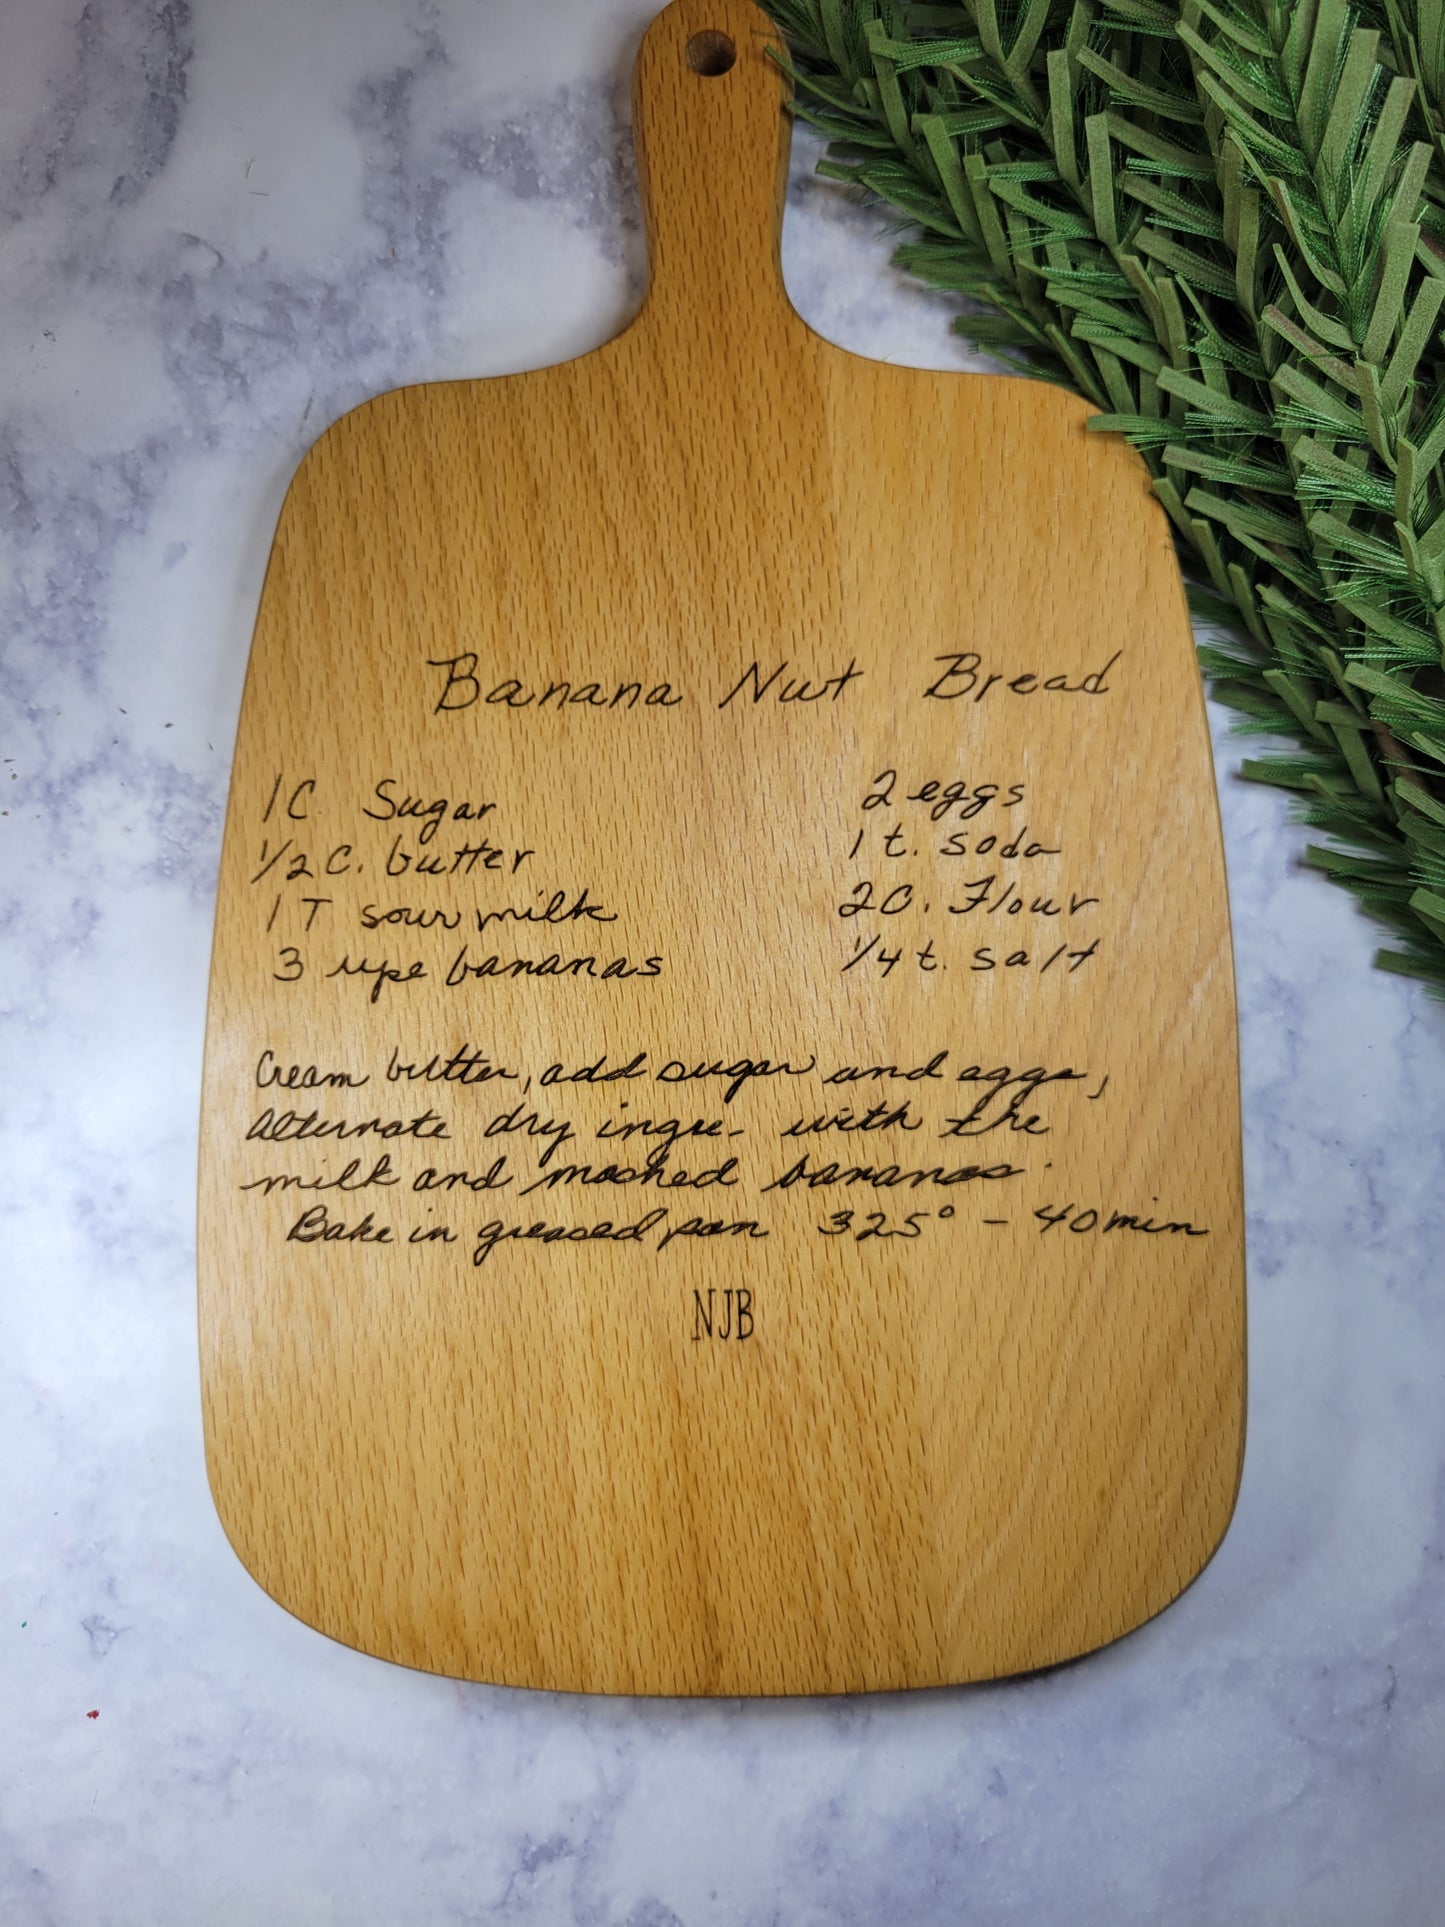 Banana Nut Bread
1C Sugar
1/2 C. butter
1 T sour milk
3 ripe bananas
2 eggs
1 t. soda
2C. Flour
1/4 t. salt
Cream butter, add sugar and eggs,
Alternate dry ingre- with the
milk and mashed bananas.
Bake in greased pan 325° - 40 min
NJB